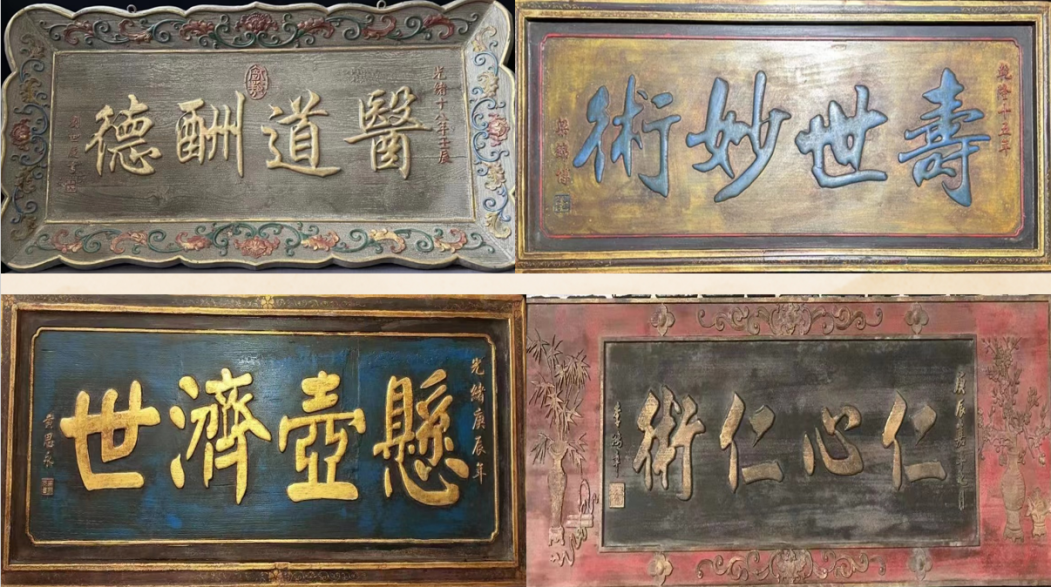 光緒十八年壬辰
醫道酬德
乾隆二十五年
壽世妙術
光緒庚辰年
懸壺濟世
黃思永
仁心仁術
李鴻章